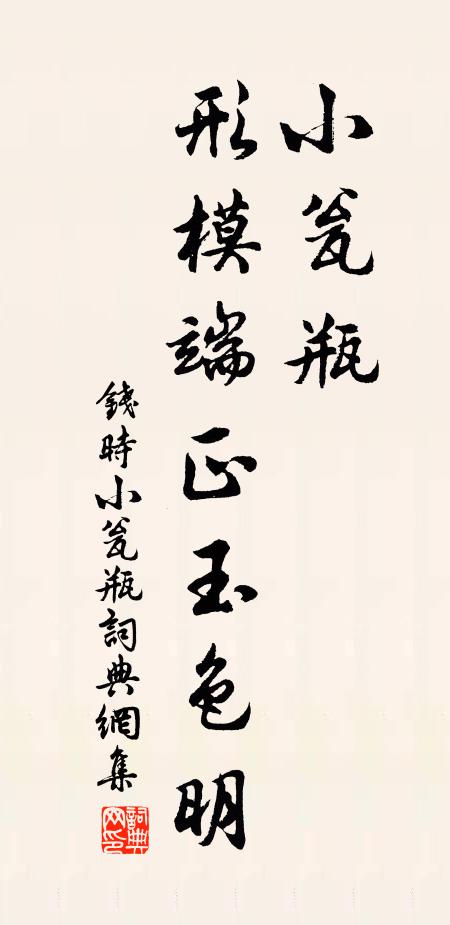 小瓮瓶
形模端正玉色明
錢時小瓮瓶詞典網集
詞典網印